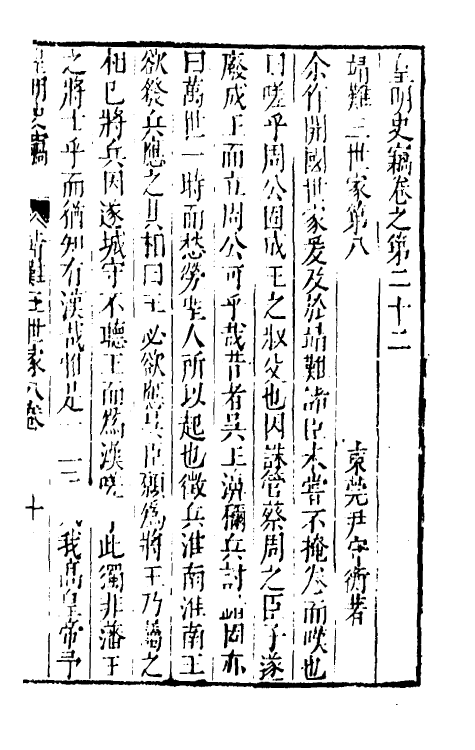 皇明史竊卷之第二十二
東莞尹守衡著
靖難三世家第八
余作開國世家爰及於靖難諸臣未嘗不掩卷而嘆也
曰嗟乎周公固成王之叔父也因誅管蔡周之臣子遂
廢成王而立周公可乎哉昔者吳王濞稱兵討晁錯固亦
曰萬世一時而愁勞聖人所以起也徵兵淮南淮南王
欲發兵應之其相曰王必欲應吳臣願為將王乃屬之
相已將兵因遂城守不聽王而為漢嗟乎此獨非藩王
之將士乎而猶知有漢哉惟是 我高皇帝
皇明史竊 靖難三世家八卷 十